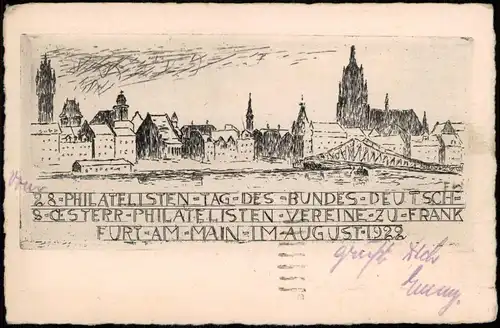 28·PHILATELISTEN·TAG·DES·BUNDES·DEUTSCH-
&·OESTERR·PHILATELISTEN·VEREINE·ZU·FRANK
FURT·AM·MAIN·IM·AUGUST·1922
grüßt Dich